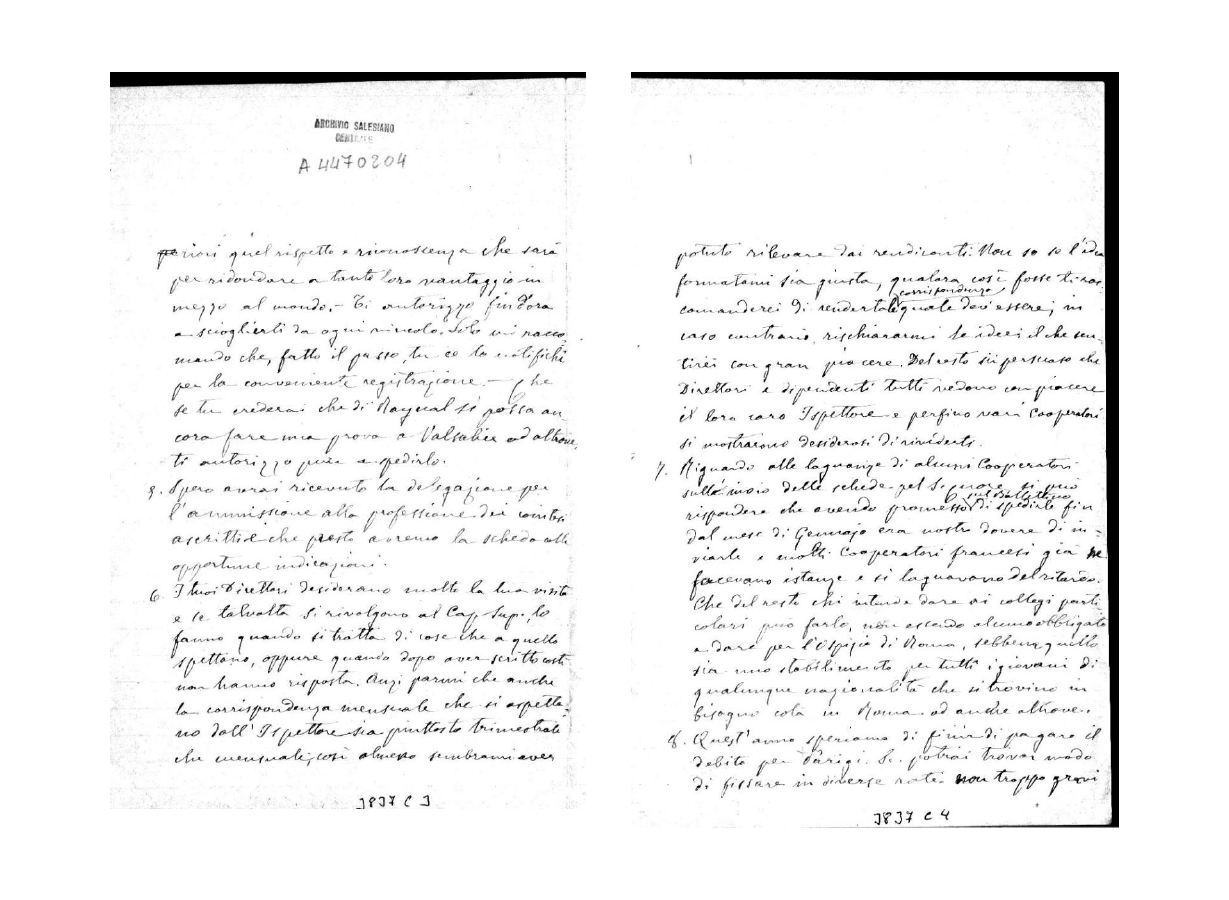 ARCHIVIO SALESIANO
CENTRALE
A 4470204
periori quel rispetto e riconoscenza che sarà
per ridondare a tanto loro vantaggio in
mezzo al mondo. - Ti autorizzo fin d'ora
a scioglierli da ogni vincolo. Solo mi racco-
mando che, fatto il passo, tu ce la notifichi
per la conveniente registrazione. - Che
se tu crederai che di Raynal si possa an
cora fare una prova a Valsalice od altrove,
ti autorizzo pure a spedirlo.
5. Spero avrai ricevuto la delegazione per
l'ammissione alla professione dei costi
ascritti e che presto avremo la scheda colle
opportune indicazioni.
6. I tuoi Direttori desiderano molto la tua visita
e se talvolta si rivolgono al Cap. Sup. lo
fanno quando si tratta di cose che a quello
spettano, oppure quando dopo aver scritto costì
non hanno risposta. Anzi parmi che anche
la corrispondenza mensuale che si aspetta-
no dall'Ispettore sia piuttosto trimestrale
che mensuale, così almeno sembrami aver
3837 C 3
potuto rilevare dai rendiconti. Non so se l'idea
formatami sia giusta, qualora così fosse ti rac-
corrispondenza
comanderei di render tale quale dev'essere; in
caso contrario, rischiararmi le idee il che sen-
tirei con gran piacere. Del resto sii persuaso che
Direttori e dipendenti tutti vedono con piacere
il loro caro Ispettore e perfino vari Cooperatori
si mostrarono desiderosi di rivederti.
7. Riguardo alle lagnanze di alcuni Cooperatori
sull'invio delle schede pel S. Cuore si può
sul Bollettino
rispondere che avendo promesso di spedirle fin
dal mese di Gennajo era nostro dovere di in-
viarle e molti Cooperatori francesi già ne
facevano istanze e si lagnavano del ritardo.
Che del resto chi intende dare ai collegi parti
colari può farlo, non essendo alcuno obbligato
a dare per l'Ospizio di Roma, sebbene quello
sia uno stabilimento per tutti i giovani di
qualunque nazionalità che si trovino in
bisogno colà in Roma od anche altrove.
8. Quest'anno speriamo di finir di pagare il
debito per Parigi. Se potrai trovar modo
di fissare in diverse rate non troppo gravi
3837 C 4